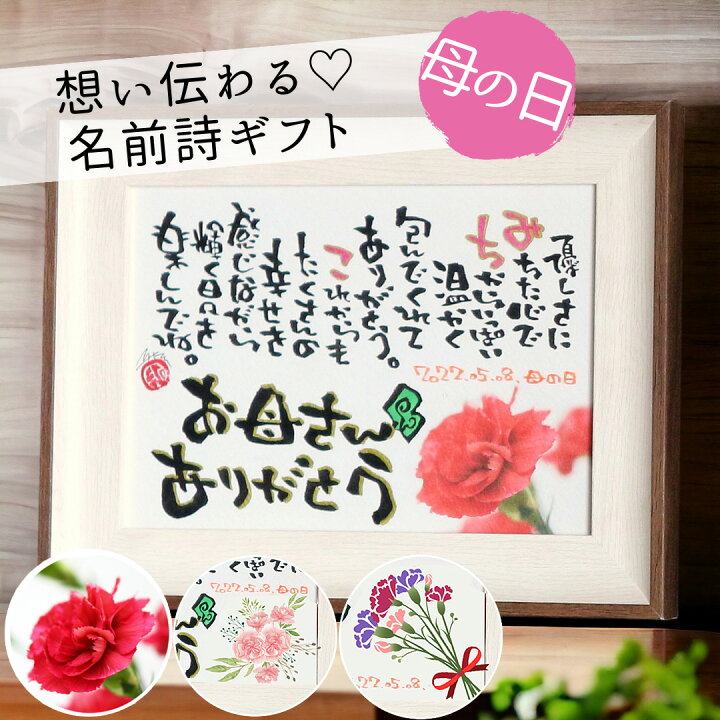 想い伝わる♡
名前詩ギフト
母の日
優しさに
みちた心で
ちからいっぱい
温かく
包んでくれて
ありがとう。
これからも
たくさんの
幸せを
感じながら
輝く日々を
楽しんでね。
2022.05.08.母の日
お母さん
ありがとう
っぱいで
2022.05.08.母の日
22.05.08.